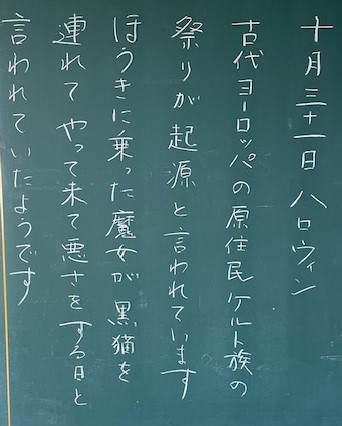 十月三十一日 ハロウィン
古代ヨーロッパの原住民ケルト族の
祭りが起源と言われています
ほうきに乗った魔女が黒猫を
連れてやって来て悪さをする日と
言われていたようです